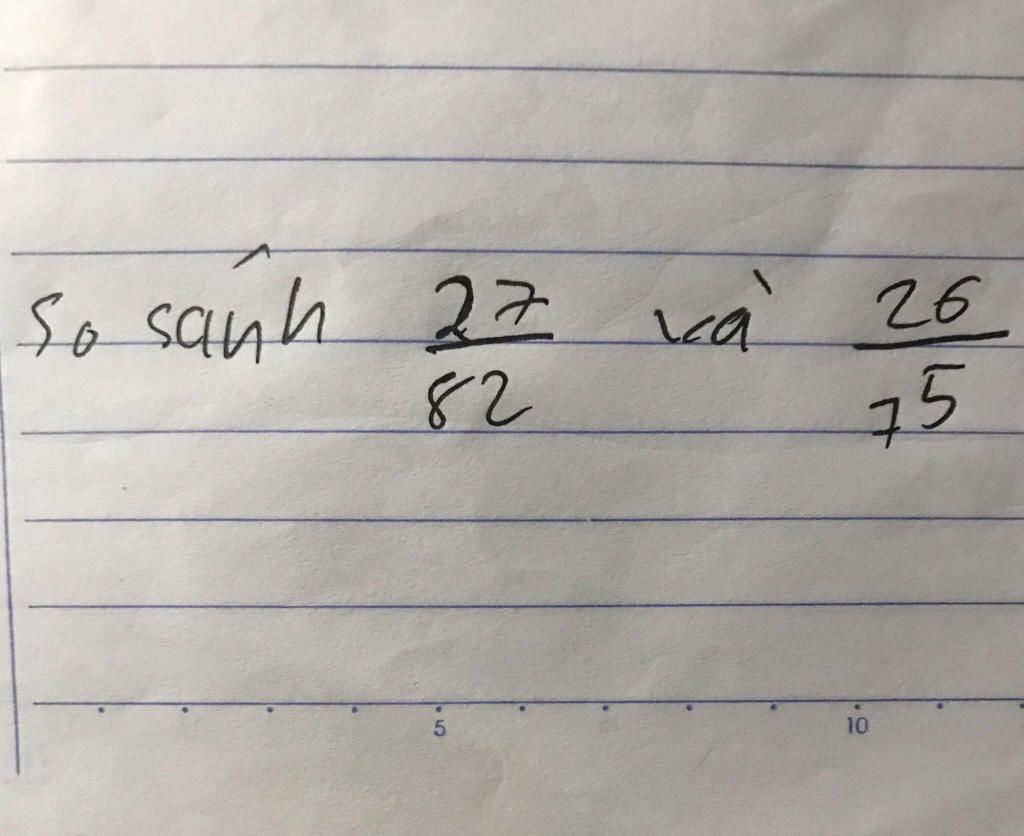 So sánh 27/82 và 26/75
5 10